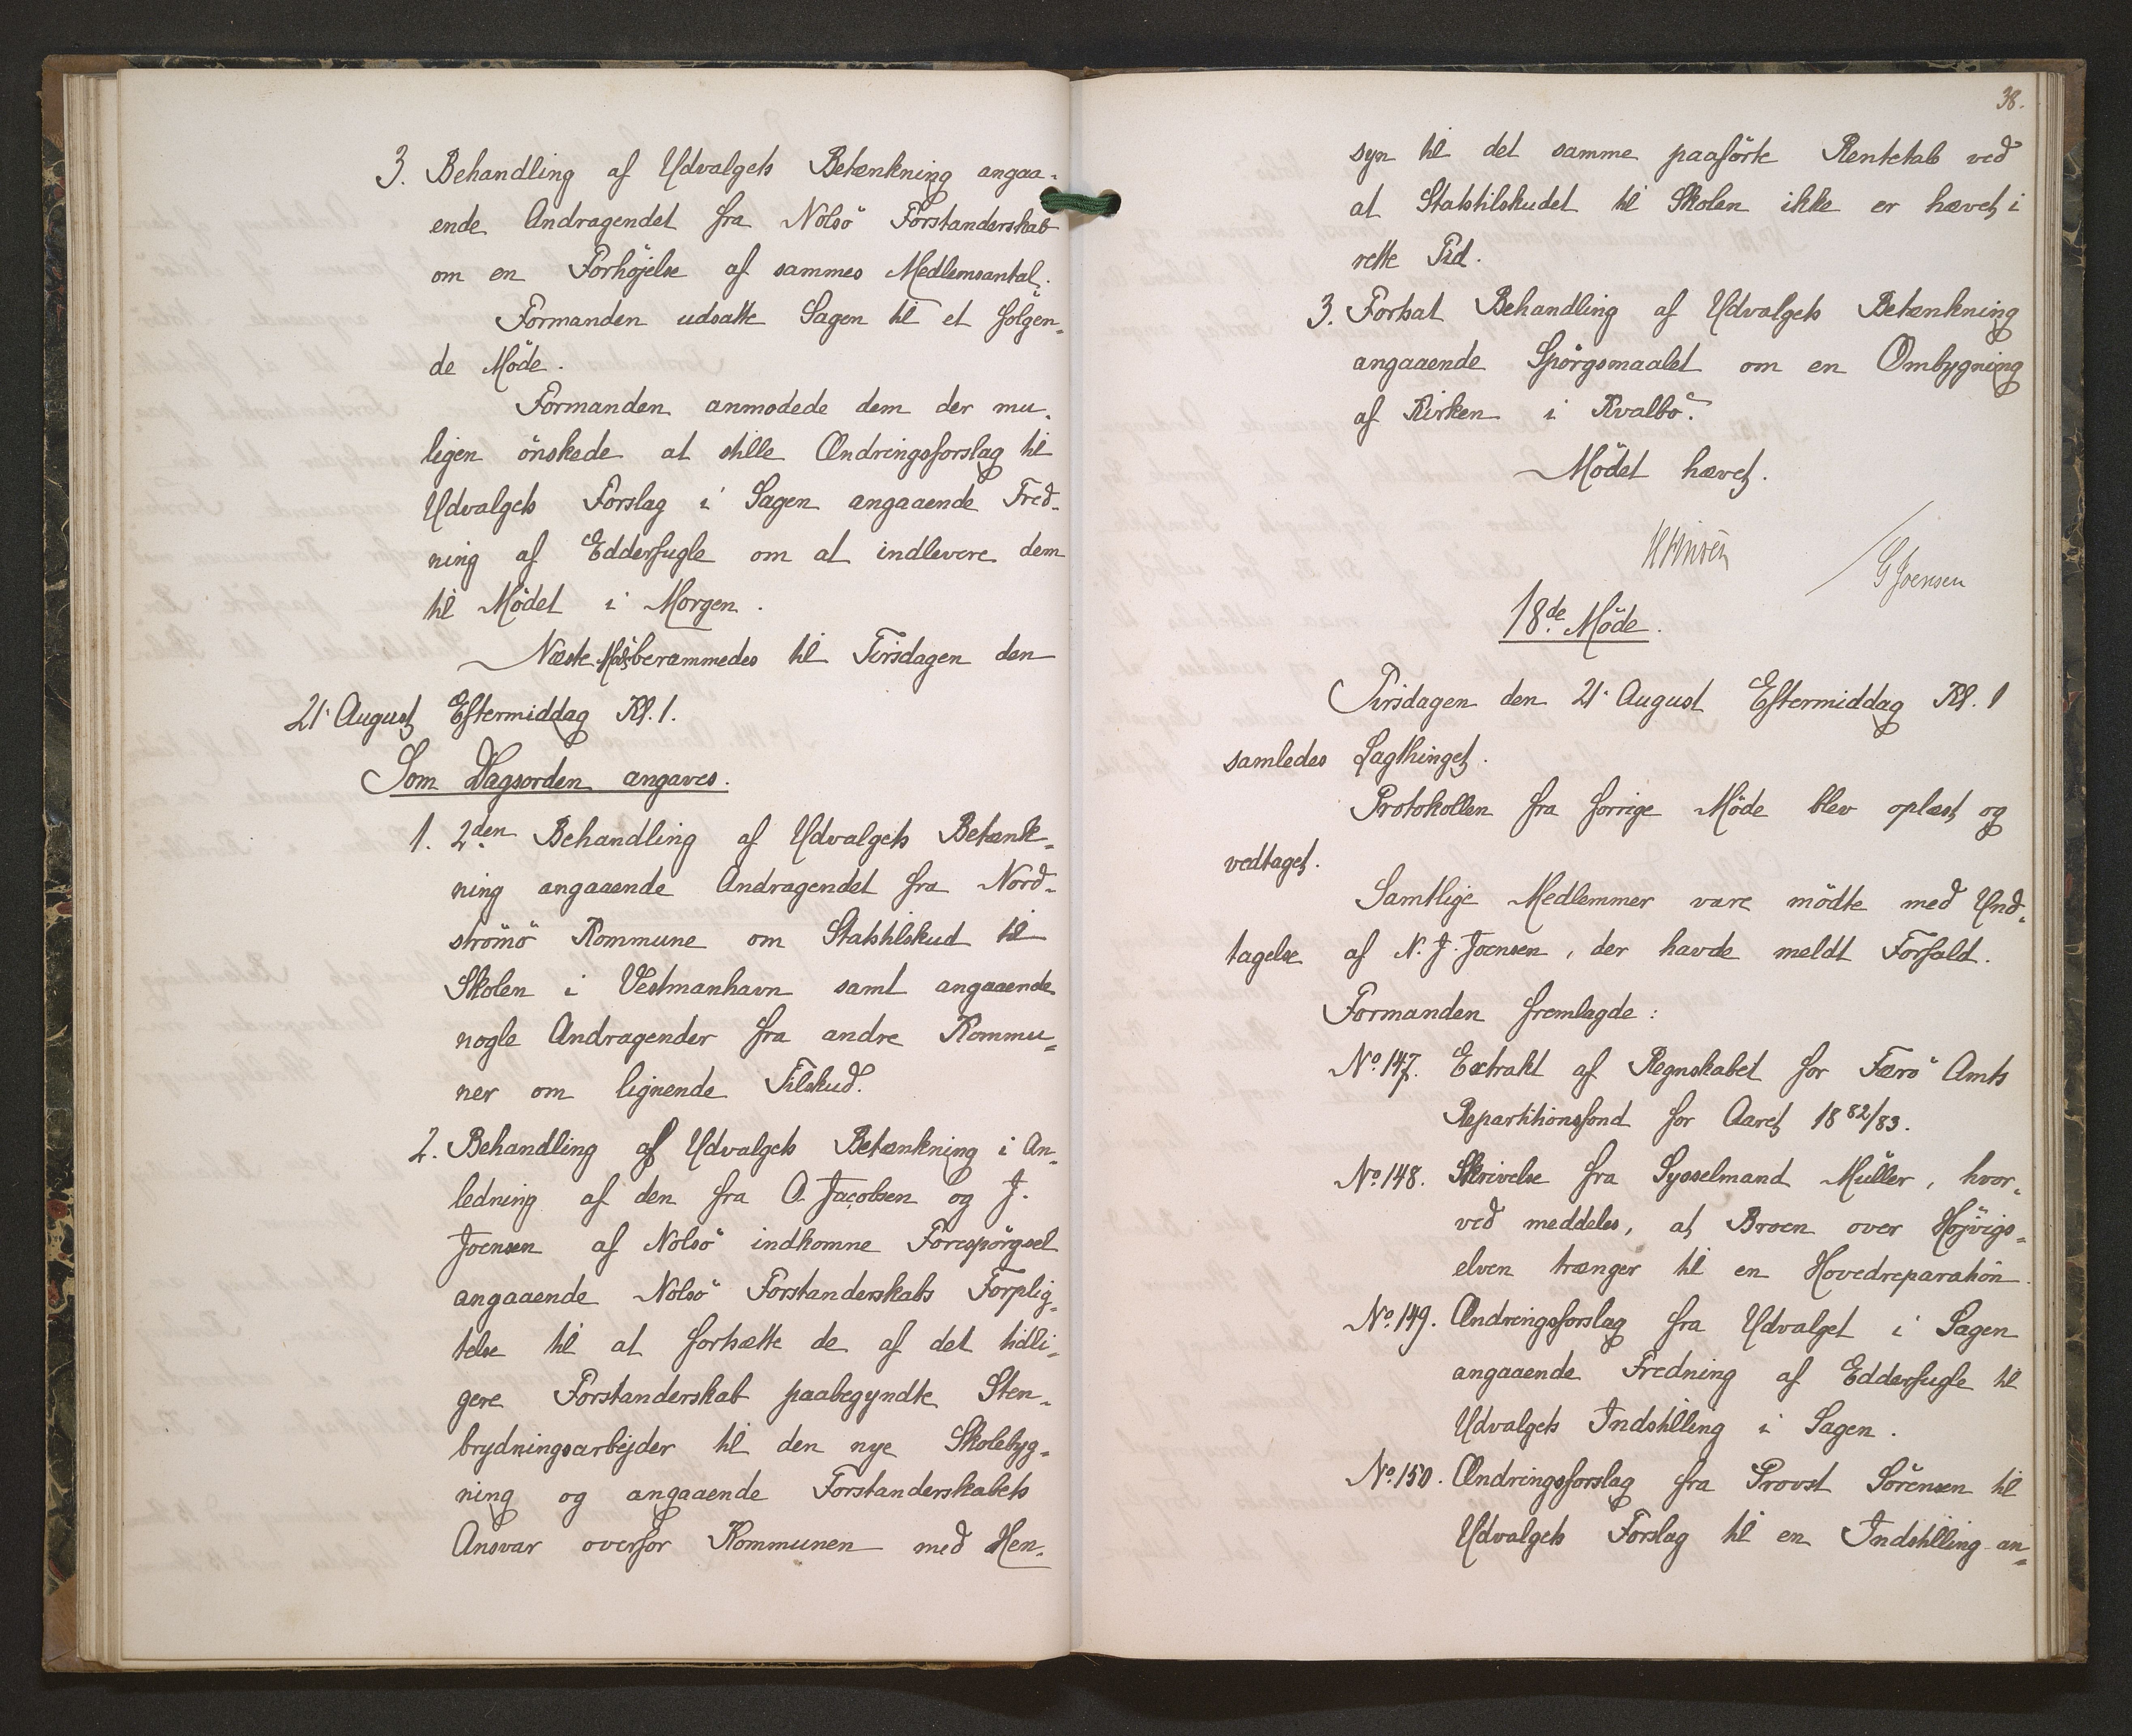 3. Behandling af Udvalgets Betænkning angaa-
ende Andragendet fra Nolsö Forstanderskab
om en Forhöjelse af sammes Medlemsantal.
Formanden udsatte Sagen til et fölgen-
de Möde.
Formanden anmodede dem der mu-
ligen önskede at stille Ændringsforslag til
Udvalgets Forslag i Sagen angaaende Fred-
ning af Edderfugle om at indlevere dem
til Mödet i Morgen.
Næste Möde berammedes til Tirsdagen den
21. August Eftermiddag Kl. 1.
Som Dagsorden angaves.
1. 2den Behandling af Udvalgets Betænk-
ning angaaende Andragendet fra Nord-
strömö Kommune om Statstilskud til
Skolen i Vestmanhavn samt angaaende
nogle Andragender fra andre Kommu-
ner om lignende Tilskud.
2. Behandling af Udvalgets Betænkning i An-
ledning af den fra O. Jacobsen og J.
Joensen af Nolsö indkomne Forespörgsel
angaaende Nolsö Forstanderskabs Forplig-
telse til at fortsætte de af det tidli-
gere Forstanderskab paabegyndte Sten-
brydningsarbejder til den nye Skolebyg-
ning og angaaende Forstanderskabets
Ansvar overfor Kommunen med Hen-
38.
syn til det samme paaförte Rentetab ved
at Statstilskudet til Skolen ikke er hævet i
rette Tid.
3. Fortsat Behandling af Udvalgets Betænkning
angaaende Spörgsmaalet om en Ombygning
af Kirken i Kvalbö.
Mödet hævet.
G Joensen
18de Möde.
Tirsdagen den 21. August Eftermiddag Kl. 1
samledes Lagthinget.
Protokollen fra forrige Möde blev oplæst og
vedtaget.
Samtlige Medlemmer vare mödte med Und-
tagelse af N. J. Joensen, der havde meldt Forfald.
Formanden fremlagde:
No. 147. Extrakt af Regnskabet for Færö Amts
Repartitionsfond for Aaret 1882/83.
No. 148. Skrivelse fra Sysselmand Müller, hvor-
ved meddeles, at Broen over Höjvigs-
elven trænger til en Hovedreparation.
No. 149. Ændringsforslag fra Udvalget i Sagen
angaaende Fredning af Edderfugle til
Udvalgets Indstilling i Sagen.
No. 150. Ændringsforslag fra Provst Sörensen til
Udvalgets Forslag til en Indstilling an-